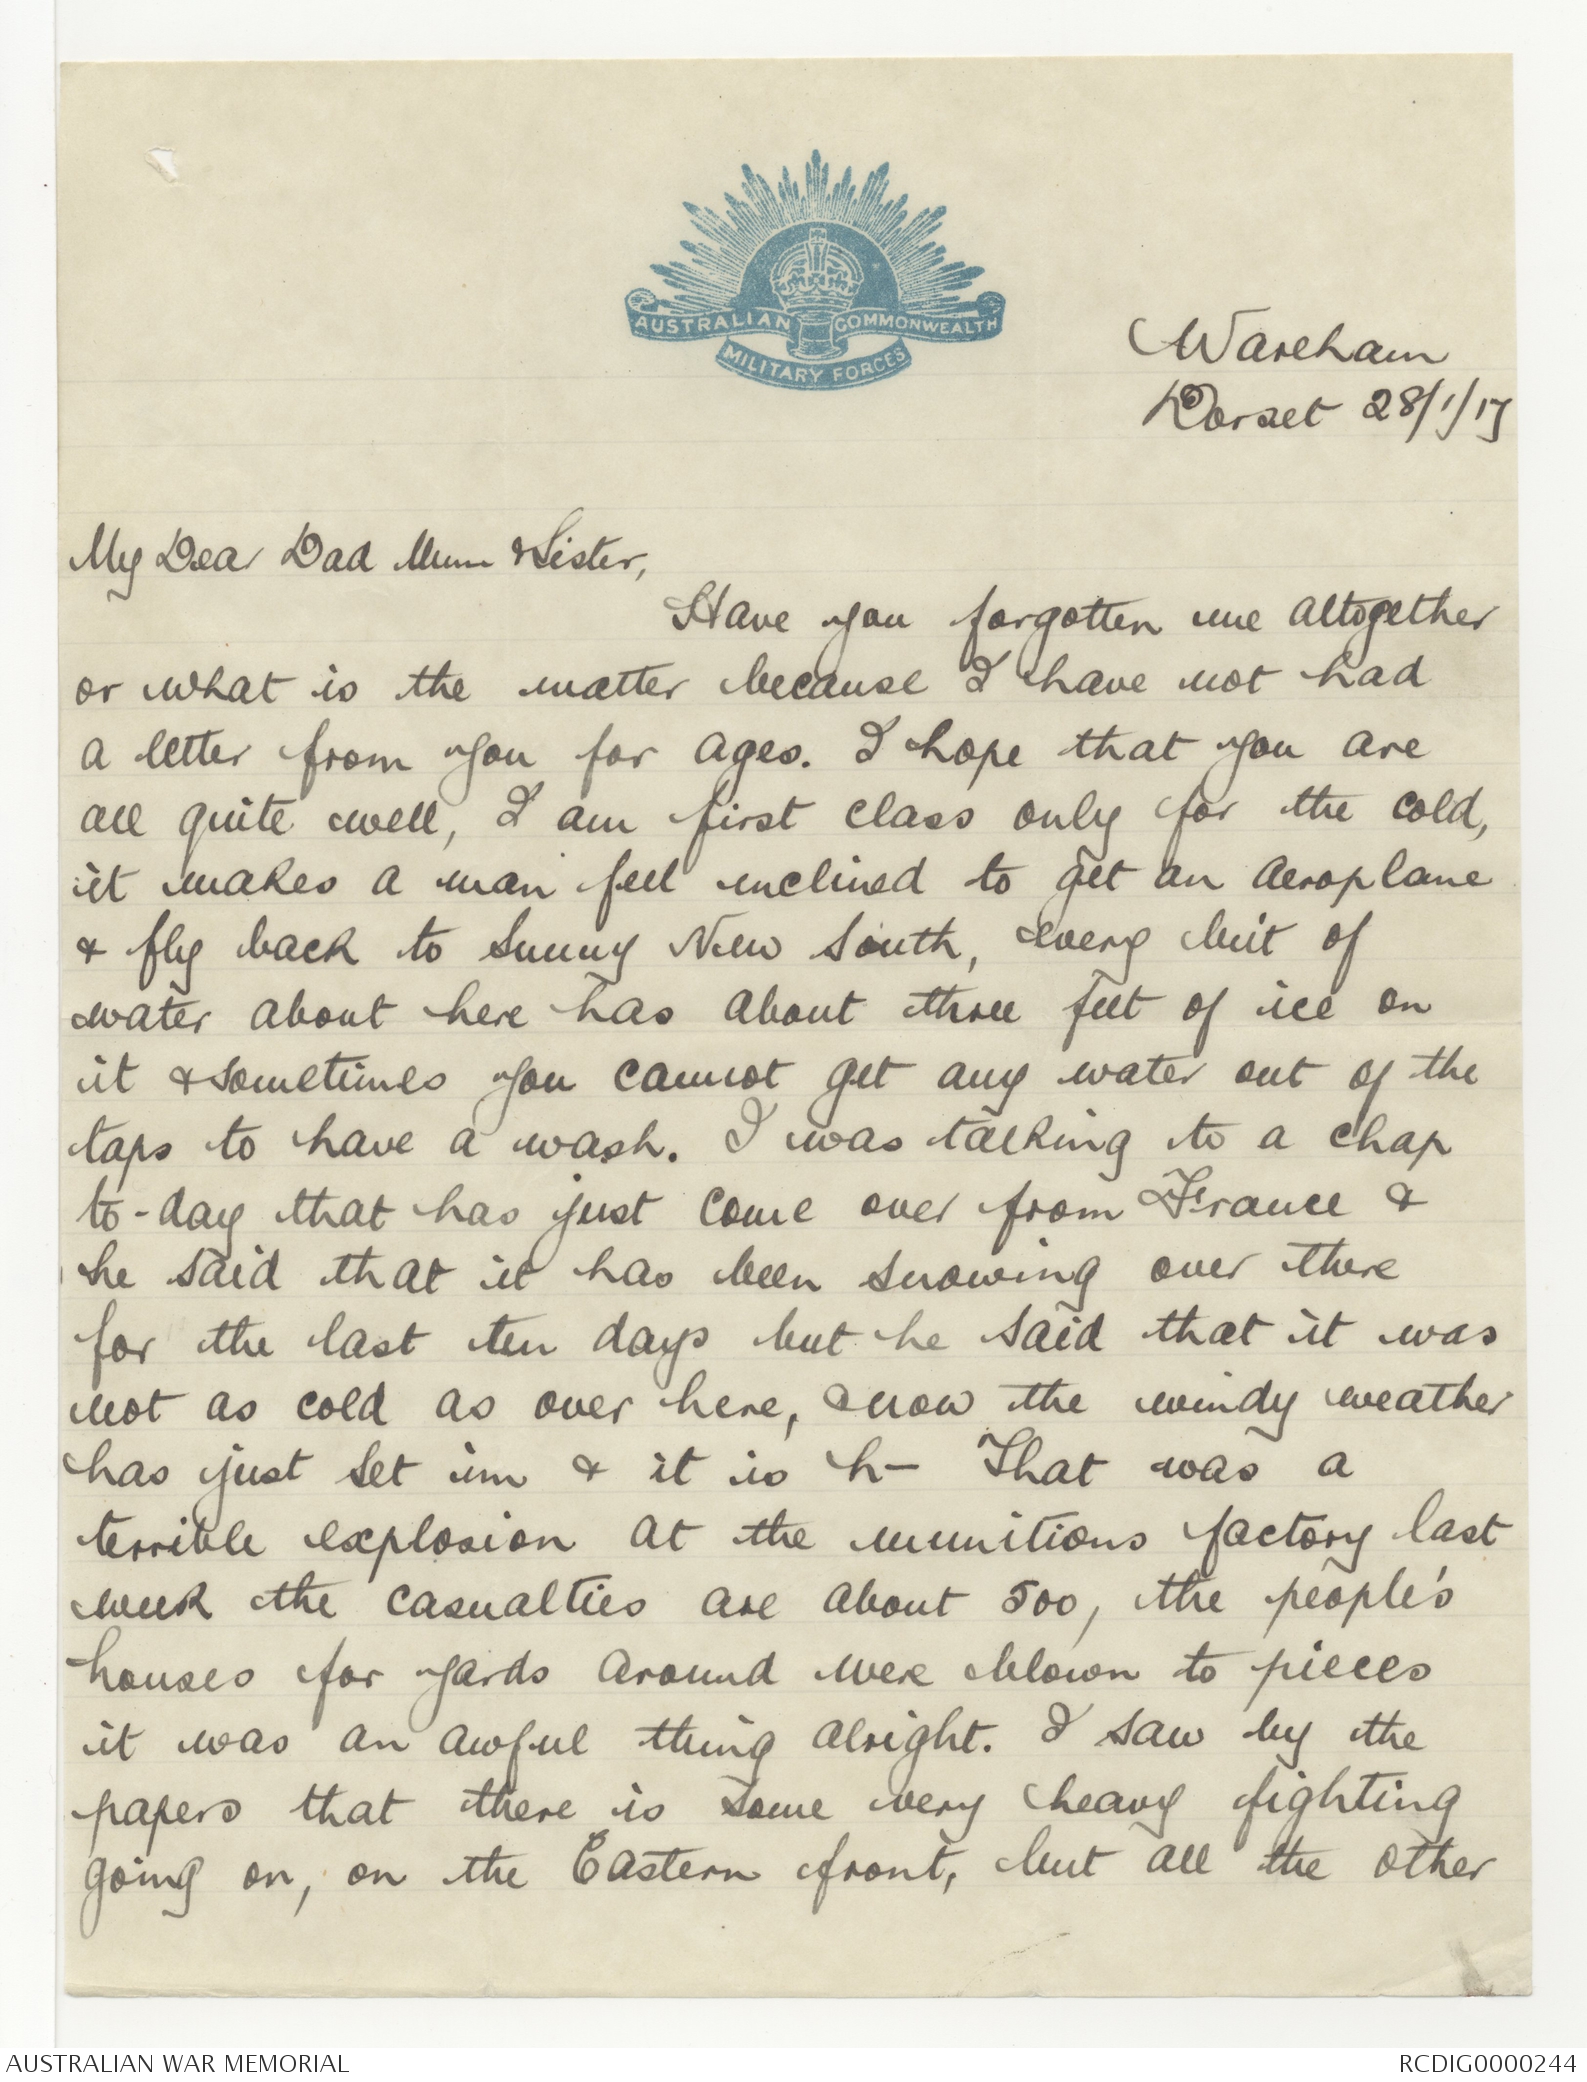 AUSTRALIAN COMMONWEALTH
MILITARY FORCES
Wareham
Dorset 28/1/17
My Dear Dad Mum & Sister,
Have you forgotten me altogether
or what is the matter because I have not had
a letter from you for ages. I hope that you are
all quite well, I am first class only for the cold,
it makes a man feel inclined to get an aeroplane
& fly back to Sunny New South, every bit of
water about here has about three feet of ice on
it & sometimes you cannot get any water out of the
taps to have a wash. I was talking to a chap
to-day that has just come over from France &
he said that it has been snowing over there
for the last ten days but he said that it was
not as cold as over here, & now the windy weather
has just set in & it is h— That was a
terrible explosion at the munitions factory last
week the casualties are about 500, the people's
houses for yards around were blown to pieces
it was an awful thing alright. I saw by the
papers that there is some very heavy fighting
going on, on the Eastern front, but all the other
AUSTRALIAN WAR MEMORIAL
RCDIG0000244